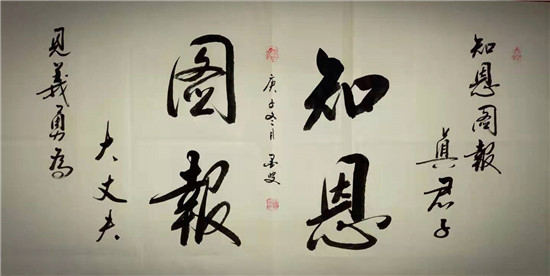 知恩图報
真君子
知恩
图報
庚子冬月 墨叟
見義勇為
大丈夫